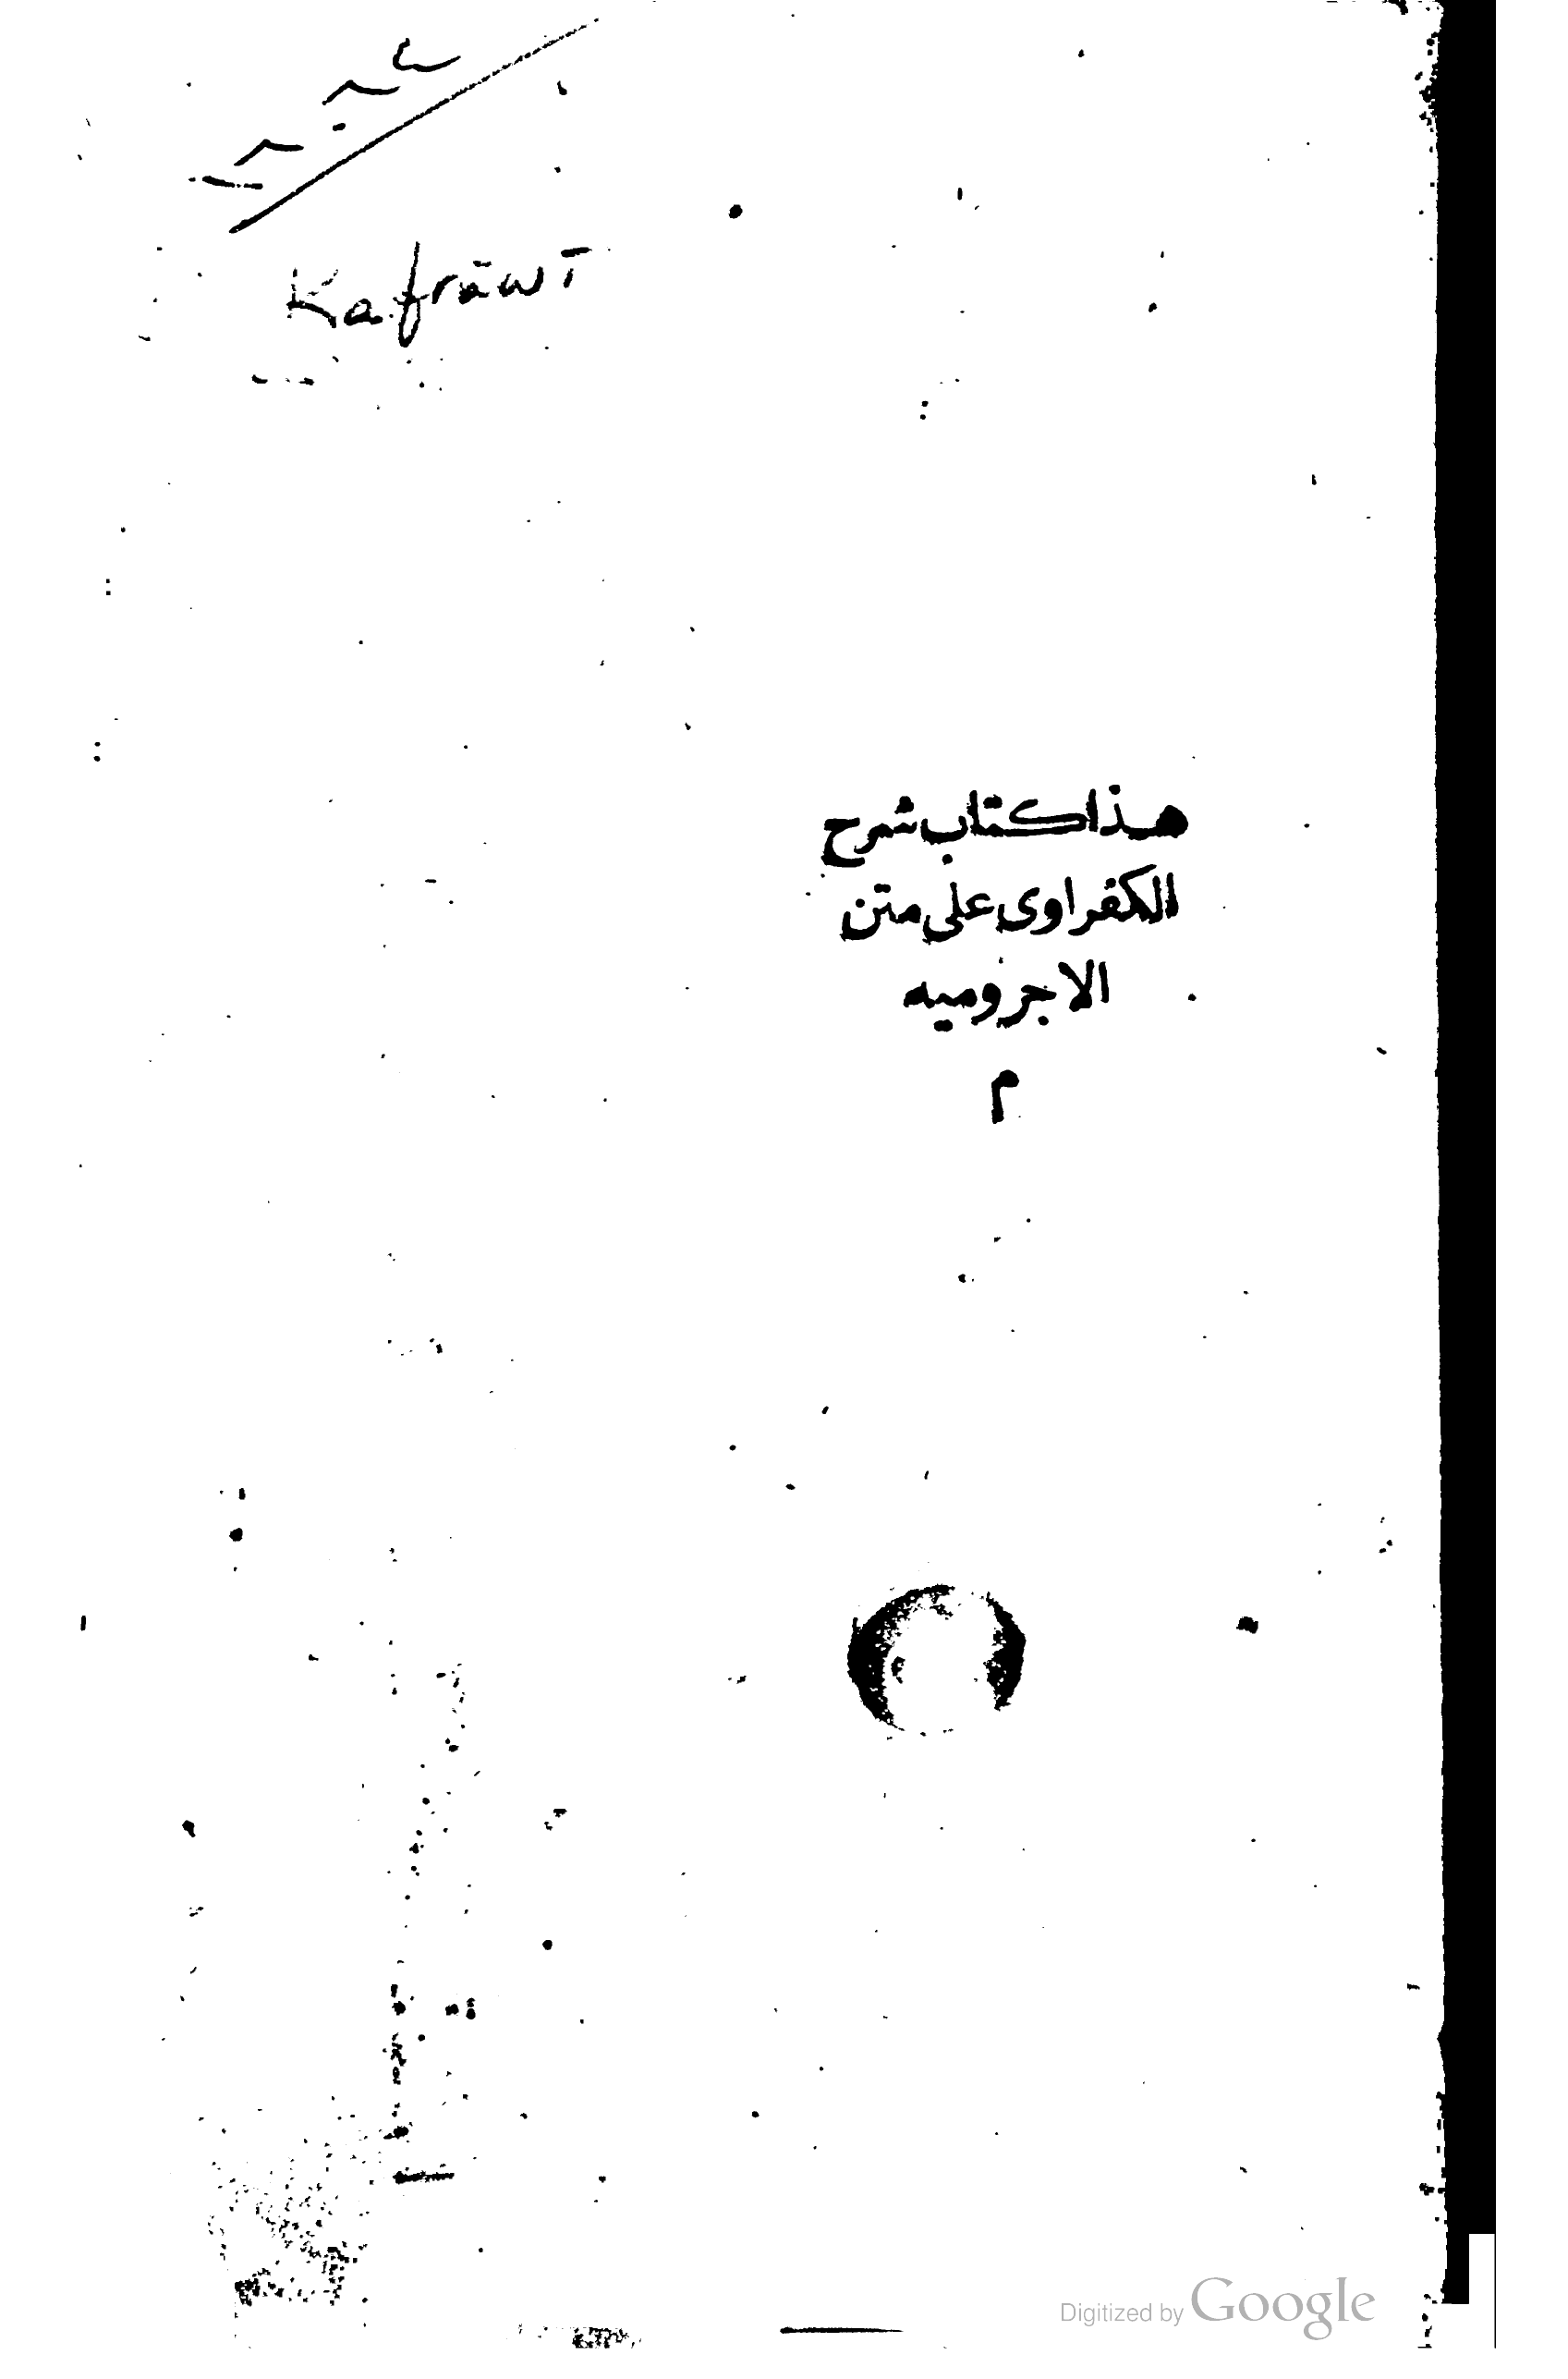 Kafrāwī
هذا كتاب شرح
الكفراوى على متن
الاجروميه
م
Digitized by Google